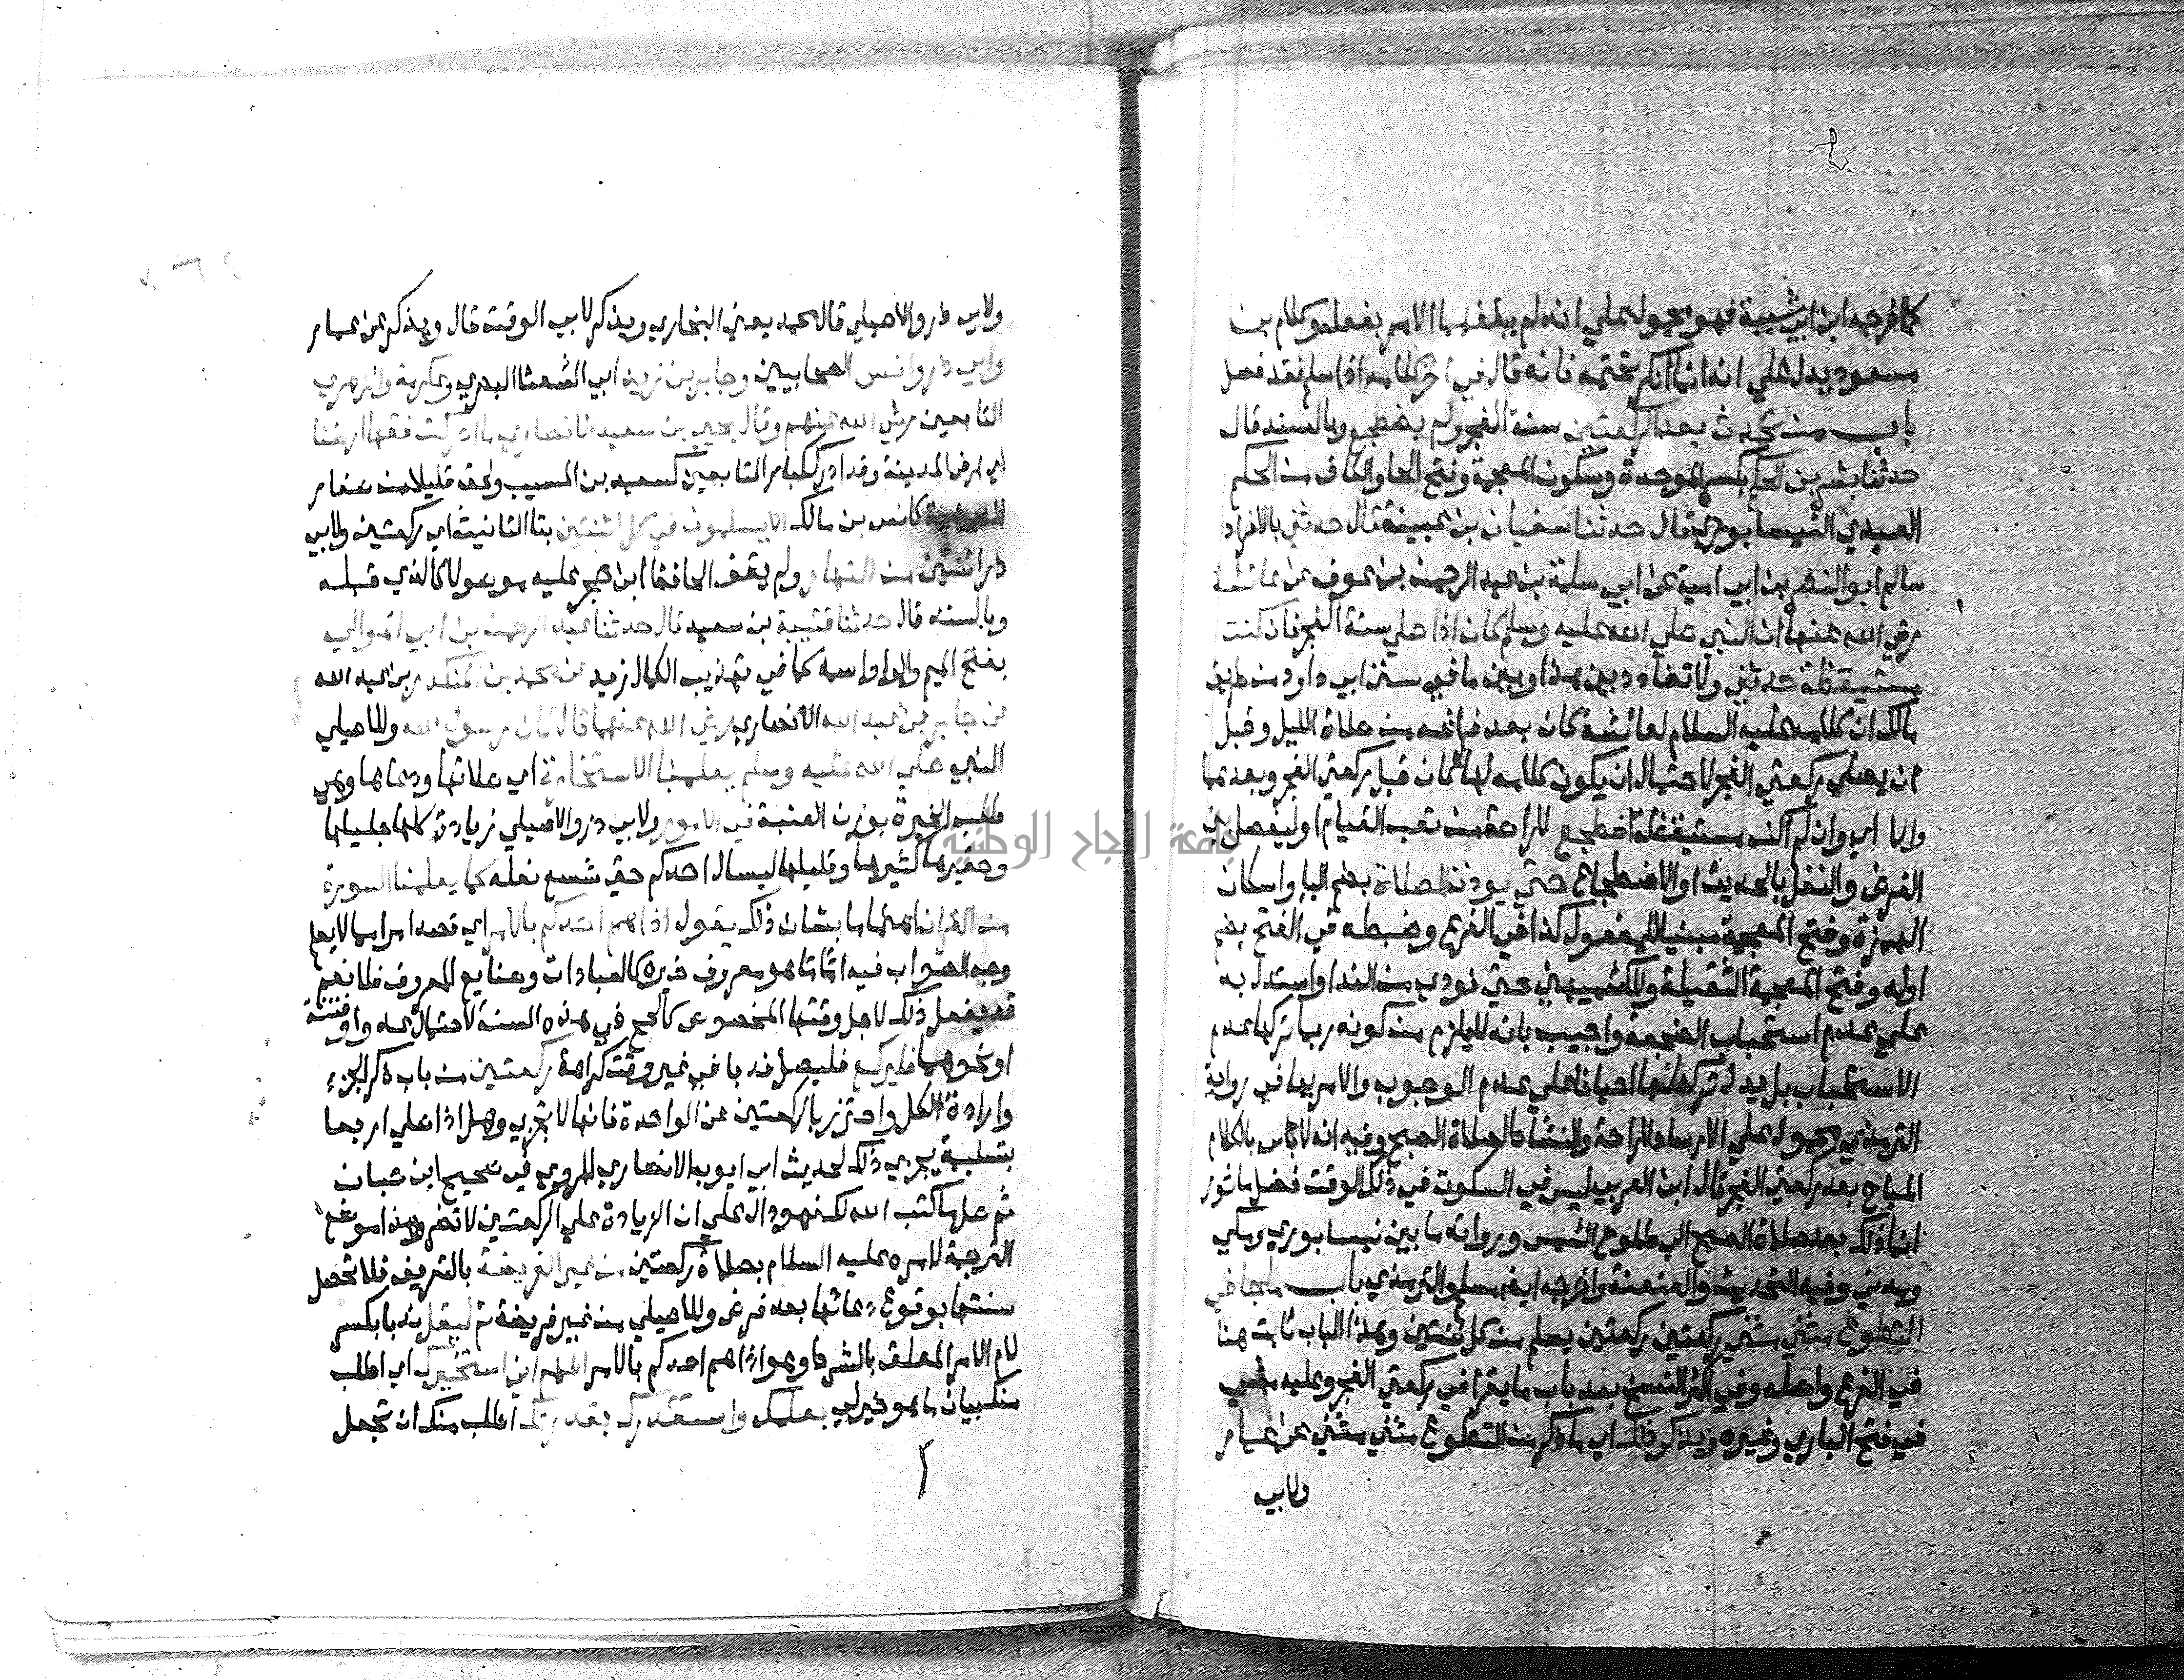 كما خرجه ابن ابي شيبة فهو محمول علي انه لم يبلغهما الامر بفعله وكلام بن
مسعود يدل علي انه انما انكر تحتمه فانه قال في اخر كلامه اذا سلم فقد فصل
باب من تحدث بعد الركعتين سنة الفجر ولم يضطجع وبالسند قال
حدثنا بشر بن الحكم بكسر الموحدة وسكون المعجمة وفتح الحا والكاف من الحكم
العبدي النيسابوري قال حدثنا سفيان بن عيينة قال حدثني بالافراد
سالم ابو النضر بن ابي امية عن ابي سلمة بن عبد الرحمن بن عوف عن عائشة
رضي الله عنها ان النبي صلي الله عليه وسلم كان اذا صلي سنة الفجر فان كنت
مستيقظة حدثني ولا تضاد بين هذا وبين ما في سنن ابي داود من طريق
مالك ان كلامه عليه السلام لعائشة كان بعد فراغه من صلاة الليل وقبل
ان يصلي ركعتي الفجر لاحتمال ان يكون كلامه لها كان قبل ركعتي الفجر وبعدهما
والا اي وان لم اكن مستيقظة اضطجع للراحة من تعب القيام او ليفصل بين
الفرض والنفل بالحديث او الاضطجاع حتي يوذن بالصلاة بضم اليا واسكان
الهمزة وفتح المعجمة مبنيا للمفعول كذا في الفرع وضبطه في الفتح بضم
اوله وفتح المعجمة الثقيلة وللكشميهني حتي نودي من الندا واستدل به
علي عدم استحباب الضجعة واجيب بانه لا يلزم من كونه ربما تركها عدم
الاستحباب بل يدل تركه لها احيانا علي عدم الوجوب والامر بها في رواية
الترمذي محمول علي الارشاد للراحة والنشاط لصلاة الصبح وفيه انه لا باس بالكلام
المباح بعد ركعتي الفجر قال ابن العربي ليس في السكوت في ذلك الوقت فضل ماثور
انما ذلك بعد صلاة الصبح الي طلوع الشمس ورواته ما بين نيسابوري ومكي
ومدني وفيه التحديث والعنعنة واخرجه ايضا مسلم والترمذي باب ما جا في
التطوع مثني مثني ركعتين ركعتين يسلم من كل ثنتين وهذا الباب ثابت هنا
في الفرع واصله وفي اكثر النسخ بعد باب ما يقرا في ركعتي الفجر وعليه مشي
في فتح الباري وغيره ويذكر ذلك اي ما ذكر من التطوع مثني مثني عن عمار
ولابي
ولابي ذر والاصيلي قال محمد يعني البخاري ويذكر لابي الوقت قال ويذكر عن عمار
وابي ذر وانس الصحابيين وجابر بن زيد ابي الشعثا البصري وعكرمة والزهري
التابعين رضي الله عنهم وقال يحيي بن سعيد الانصاري ما ادركت فقها ارضنا
اي ارض المدينة وقد ادرك كبار التابعين كسعيد بن المسيب ولحق قليلا من صغار
الصحابة كانس بن مالك الا يسلمون في كل اثنتين بتا التانيث اي ركعتين ولابي
ذر اثنين من النهار ولم يقف الحافظ ابن حجر عليه موصولا كالذي قبله
وبالسند قال حدثنا قتيبة بن سعيد قال حدثنا عبد الرحمن بن ابي الموالي
بفتح الميم والواو اسمه كما في تهذيب الكمال زيد عن محمد بن المنكدر بن عبد الله
عن جابر بن عبد الله الانصاري رضي الله عنهما قال كان رسول الله وللاصيلي
النبي صلي الله عليه وسلم يعلمنا الاستخارة اي صلاتها ودعاها وهي
طلب الخيرة بوزن العنبة في الامور ولابي ذر والاصيلي زيادة كلها جليلها
وحقيرها كثيرها وقليلها ليسال احدكم حتي شسع نعله كما يعلمنا السورة
من القران اهتماما بشان ذلك يقول اذا هم احدكم بالامر اي قصد امرا مما لا يعلم
وجه الصواب فيه اما ما هو معروف خيره كالعبادات وصنايع المعروف فلا نعم
قد يفعل ذلك لاجل وقتها المخصوص كالحج في هذه السنة لاحتمال عدو او فتنة
او نحوهما فليركع فليصل ندبا في غير وقت كراهة ركعتين من باب ذكر الجزء
وارادة الكل واحترز بالركعتين عن الواحدة فانها لا تجزي وهل اذا صلي اربعا
بتسليمة يجزي ذلك لحديث ابي ايوب الانصاري المروي في صحيح ابن حبان
ثم صل ما كتب الله لك فهو دال علي ان الزيادة علي الركعتين لا تضر وهذا موضع
الترجمة لامره عليه السلام بصلاة ركعتين من غير الفريضة بالتعريف فلا تحصل
سنتها بوقوع دعائها بعد فرض وللاصيلي من غير فريضة ثم ليقل ندبا بكسر
لام الامر المعلق بالشرط وهو اذا هم احدكم بالامر اللهم اني استخيرك اي اطلب
منك بيان ما هو خير لي بعلمك واستقدرك بقدرتك اطلب منك ان تجعل
جامعة النجاح الوطنية